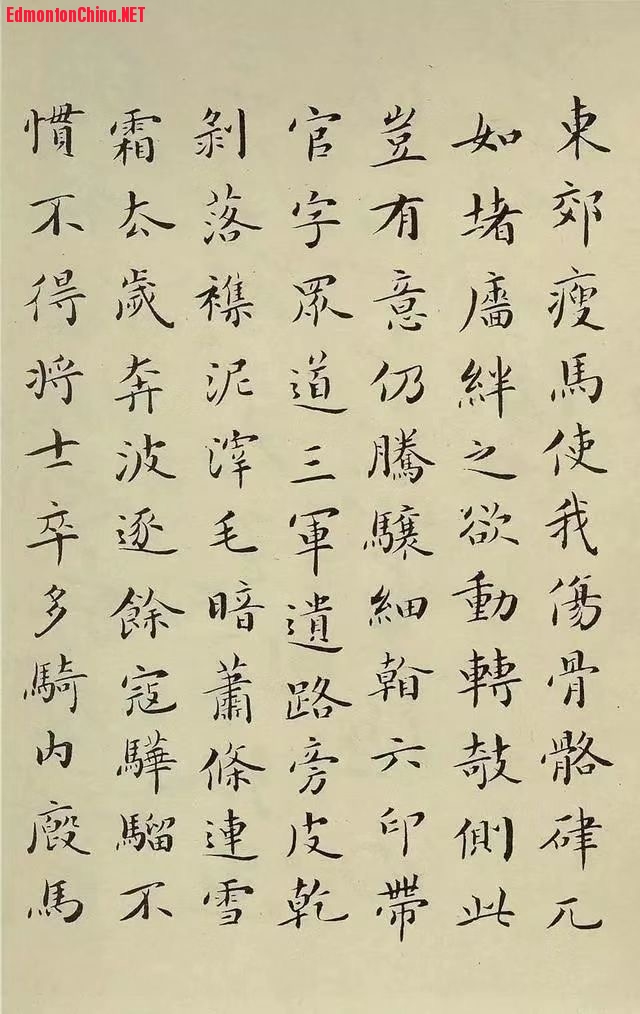 EdmontonChina.NET
東郊瘦馬使我傷骨骼硉兀
如堵牆絆之欲動轉攲側此
豈有意仍騰驤細看六印帶
官字眾道三軍遺路旁皮乾
剝落雜泥滓毛暗蕭條連雪
霜去歲奔波逐餘寇驊騮不
慣不得將士卒多騎內廄馬